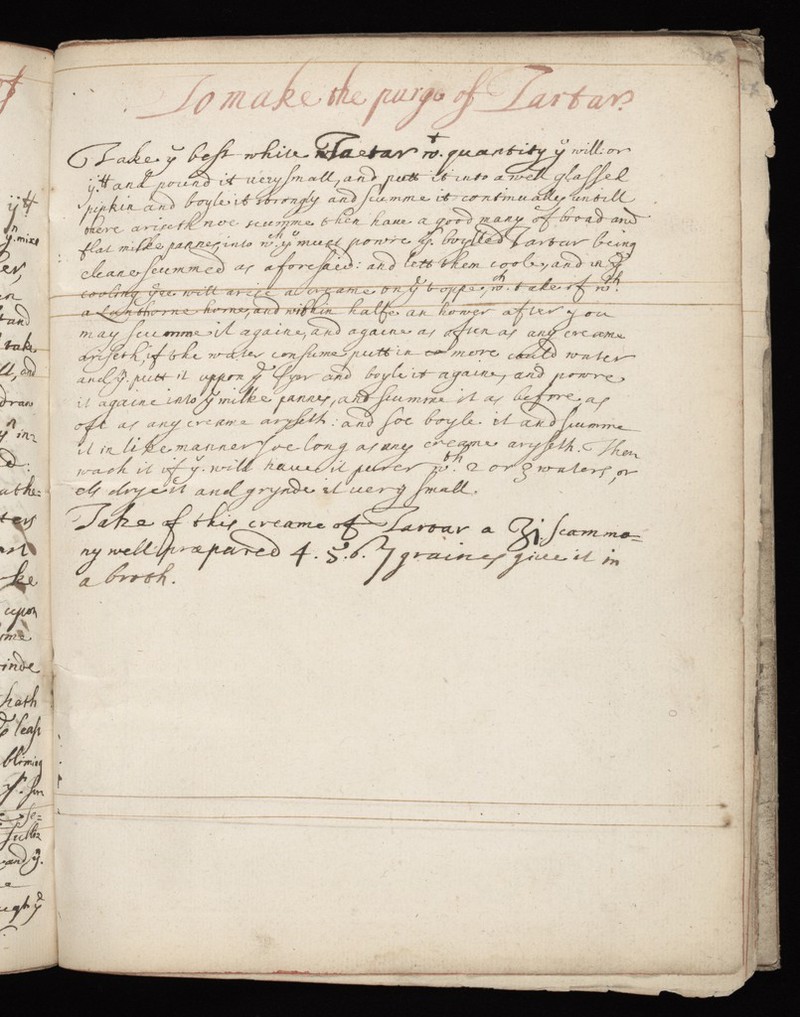 To make the purge of Tartar
Take ye best white Tartar wt. quantity ye will: or
ij tt and pound it uery small, and putt it into a well glassed
pipkin and boyle it strongly and scumme it continually untill
there ariseth noe scumme then haue a good many of broad and
flat milke pannes into wch. ye must powre ys. boylled Tartar being
cleane scummed as aforesaid: and lett them coole, and in ye
cooling yere will arise a creame on ye toppe, wch. take of wth.
a Lanthorne horne, and within halfe an hower after you
may scumme it againe, and againe as often as any creame
ariseth, if the water consume putt in more could water
and yn. putt it uppon ye fyer and boyle it againe, and powre
it againe into ye milke pannes, and scumme it as before, as
oft as any creame aryseth: and soe boyle it and scumme
it in like manner soe long as any creame aryseth. Then
wash it if ye. will haue it purer wth. 2 or 3 waters, or
els drye it and grynde it uery small.
Take of this creame of Tartar a ʒi. scammo=
ny well præpared 4. 5. 6. 7 graines giue it in
a broth.